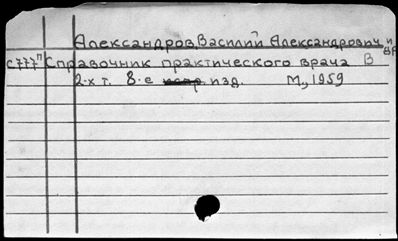 Александров, Василий Александрович и др
с777п Справочник практического врача В
2-х т. 8-е изд. М., 1959